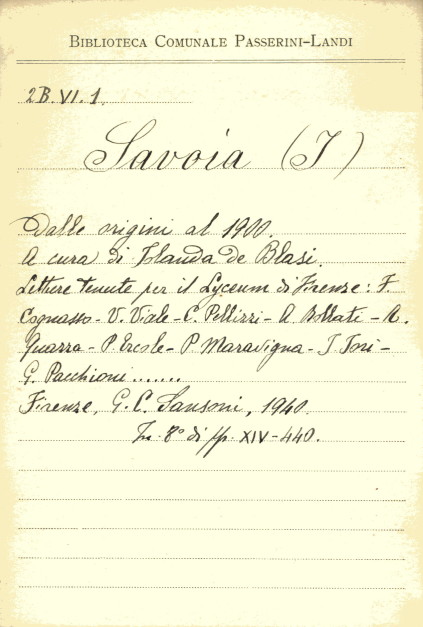 BIBLIOTECA COMUNALE PASSERINI-LANDI
2B.VI.1.
Savoia (I)
Dalle origini al 1900.
A cura di Jolanda de Blasi.
Letture tenute per il Lyceum di Firenze: F.
Cognasso - V. Viale - C. Pellizzi - A. Bollati - R.
Quazza - P. Ercole - P. Maravigna - I. Jori -
G. Pacchioni .......
Firenze, G. C. Sansoni, 1940.
In 8° di pp. XIV-440.